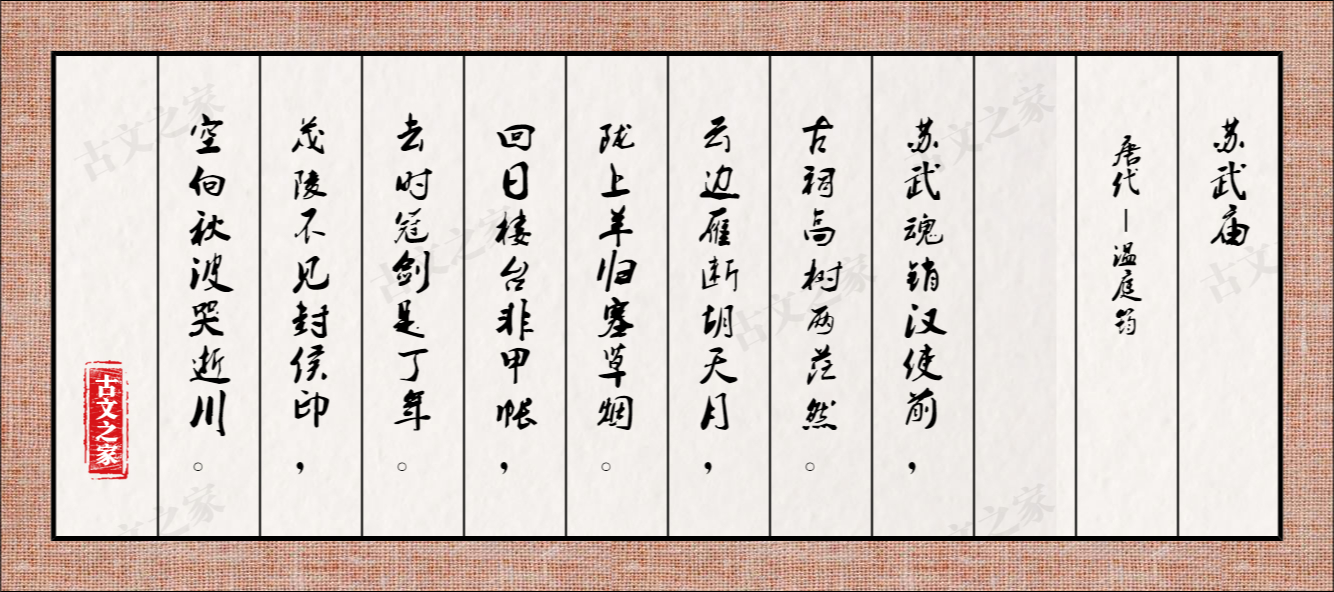 苏武庙
唐代－温庭筠
苏武魂销汉使前，
古祠高树两茫然。
云边雁断胡天月，
陇上羊归塞草烟。
回日楼台非甲帐，
去时冠剑是丁年。
茂陵不见封侯印，
空向秋波哭逝川。
古文之家